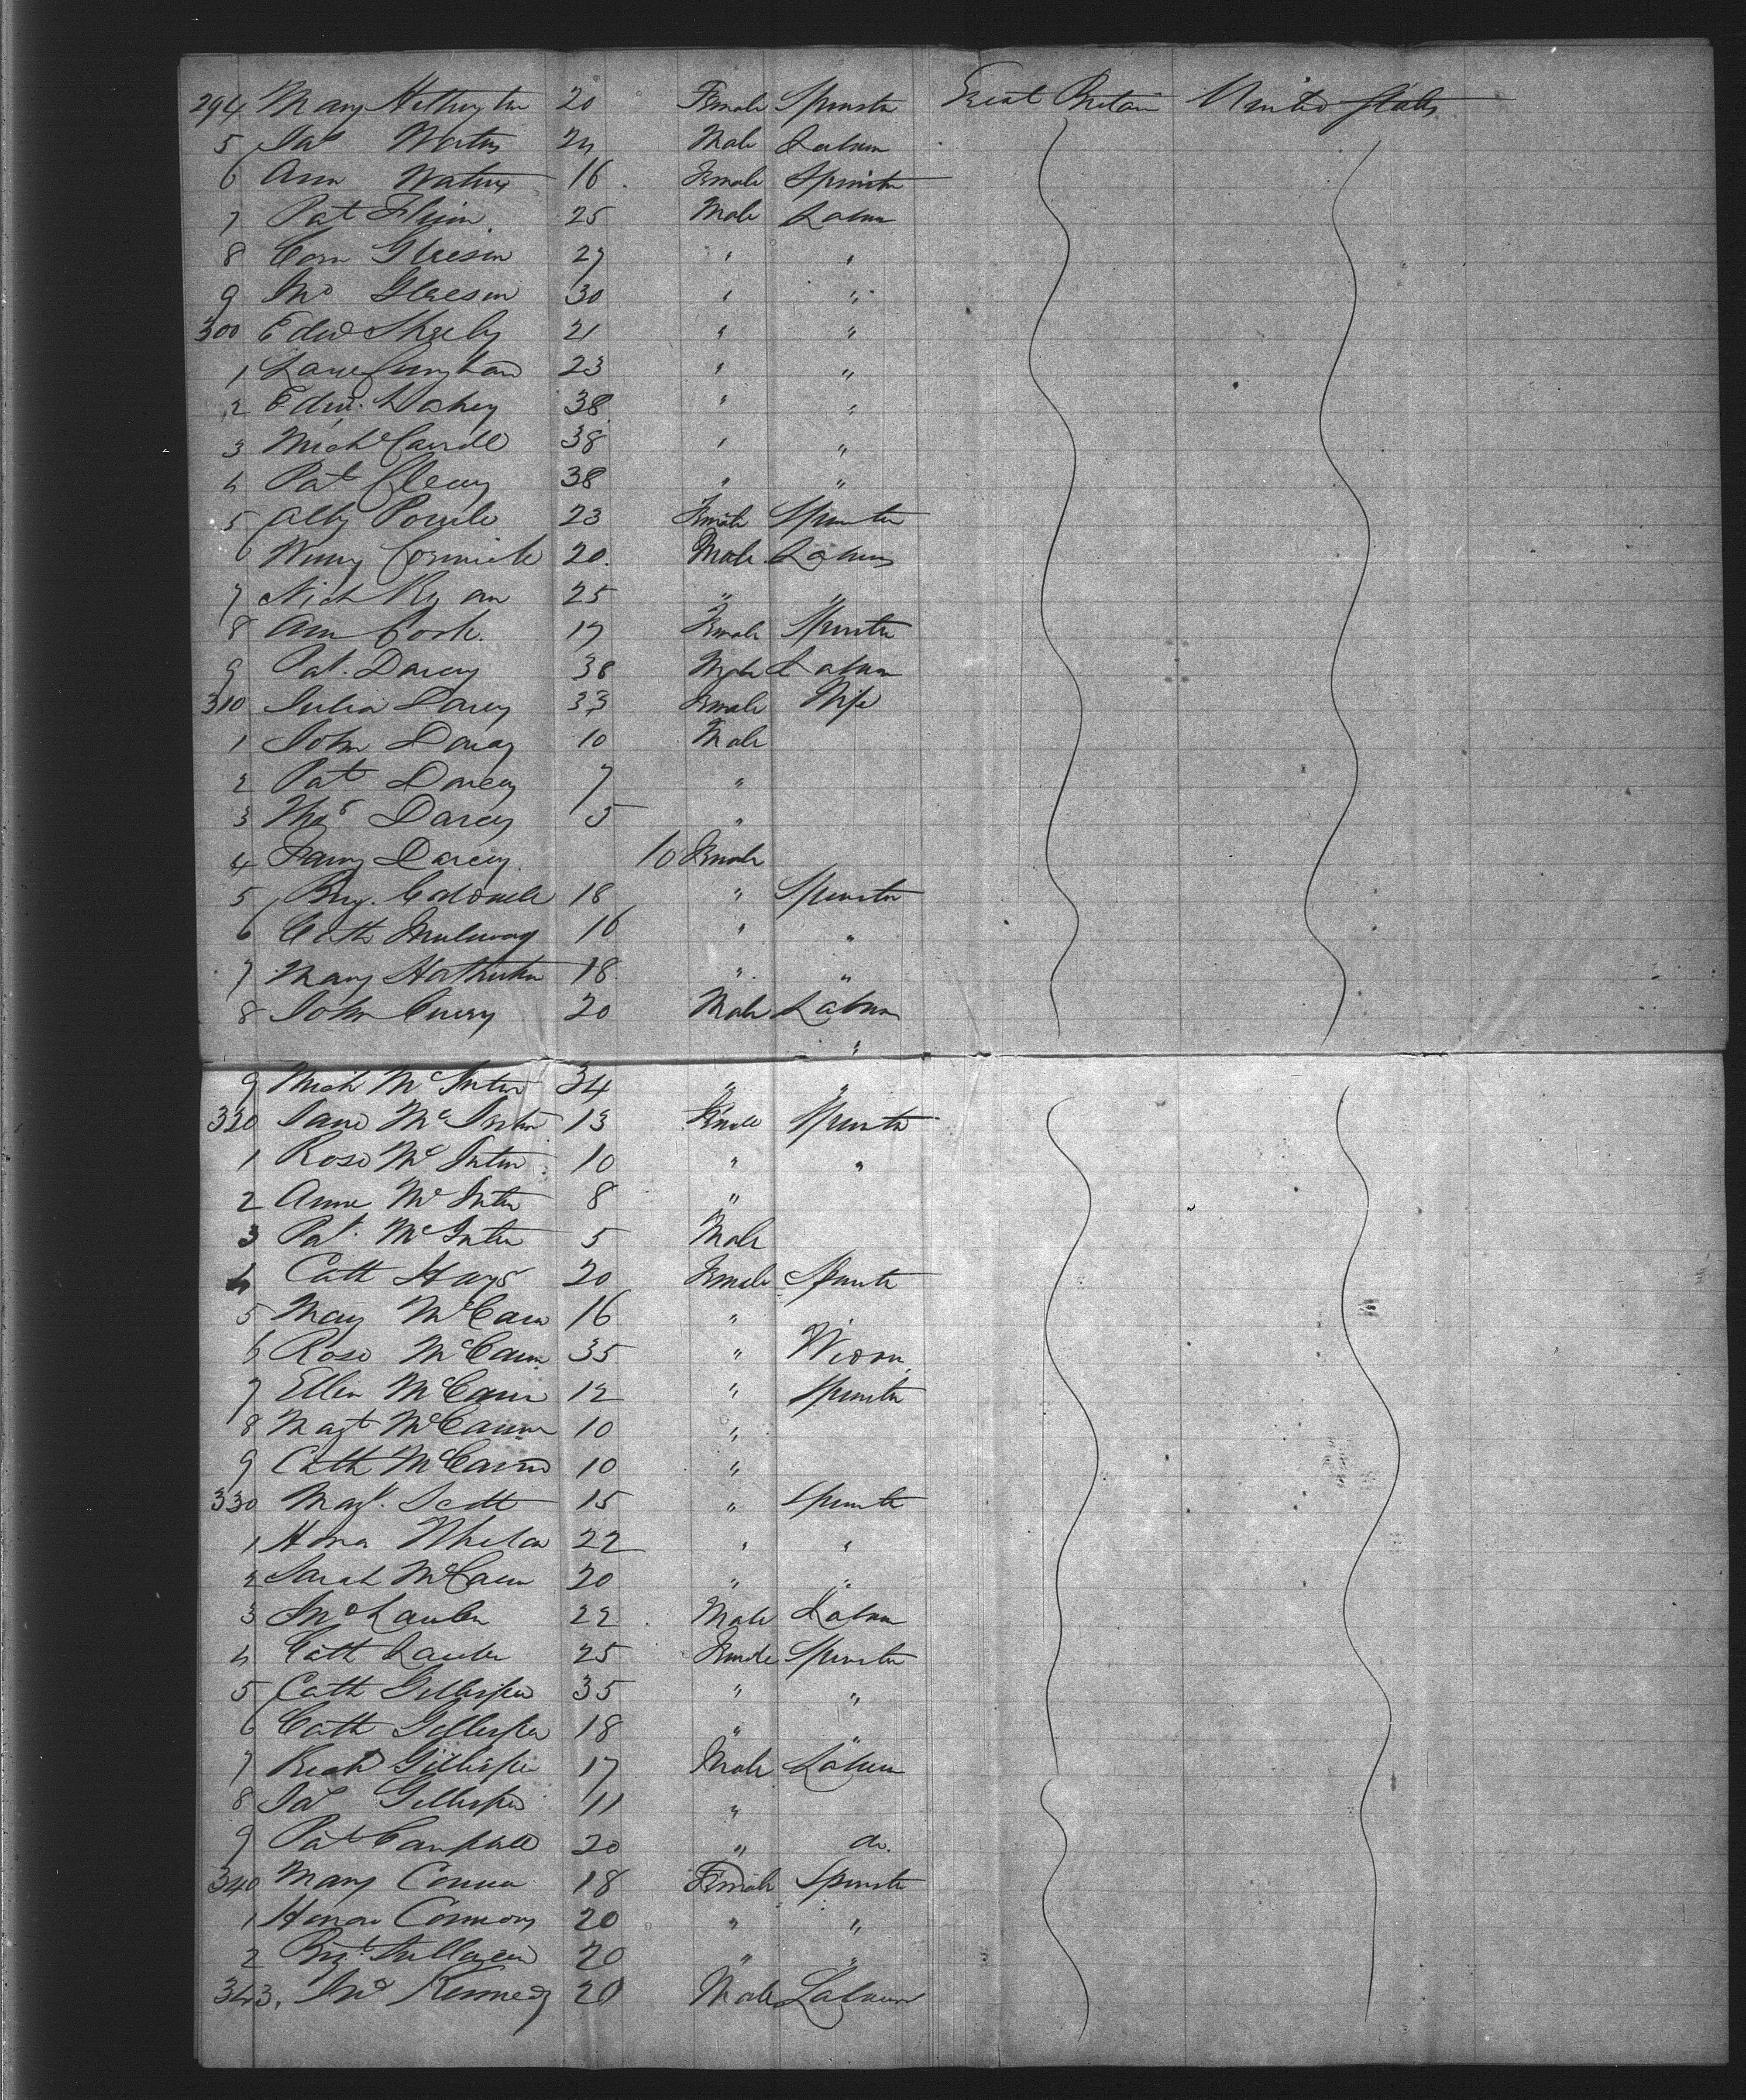 294 Mary Hethington 20 Female Spinster Great Britain United States
5 Jas Waters 24 Male Laborer
6 Ann Waters 16 Female Spinster
7 Pat Flinn 25 Male Laborer
8 Corn Gleeson 27 " "
9 Jno Gleeson 30 " "
300 Edwd Sheehy 21 " "
1 23 " "
2 Edwd 38 " "
3 Mich 38 " "
4 Pat Cleary 38 " "
5 Ally 23 Female Spinster
6 Winny Cormick 20 Male Laborer
7 Nich Ryan 25 " "
8 Ann Cook 17 Female Spinster
9 Pat. Darcy 38 Male Laborer
310 Julia Darcy 33 Female Wife
1 John Darcy 10 Male
2 Pat Darcy 7 "
3 Thos Darcy 5 "
4 Fanny Darcy 10 Female
5 Brig. Caldwell 18 " Spinster
6 Cath 16 " "
7 Mary 18 " "
8 John Curry 20 Male Laborer
"
9 Mich McInter 34 " "
320 Jane McInter 13 Female Spinster
1 Rose McInter 10 " "
2 Anne McInter 8 "
3 Pat. McInter 5 Male
4 Cath Hays 20 Female Spinster
5 Mary McCann 16 "
6 Rose McCann 35 " Widow
7 Ellen McCann 12 " Spinster
8 Magt McCann 10 "
9 Cath McCann 10 "
330 Magt. Scott 15 " Spinster
1 Hona Whelan 22 " "
2 Sarah McCann 20 " "
3 Jno Lawler 22 Male Laborer
4 Cath Lawler 25 Female Spinster
5 Cath Gillespie 35 " "
6 Cath Gillespie 18 " "
7 Richd Gillespie 17 Male Laborer
8 Jas Gillespie 11 "
9 Pat Campbell 20 " do.
340 Mary Connor 18 Female Spinster
1 Honor Connors 20 " "
2 Brigt. 20 " "
343. Jno Kennedy 20 Male Laborer